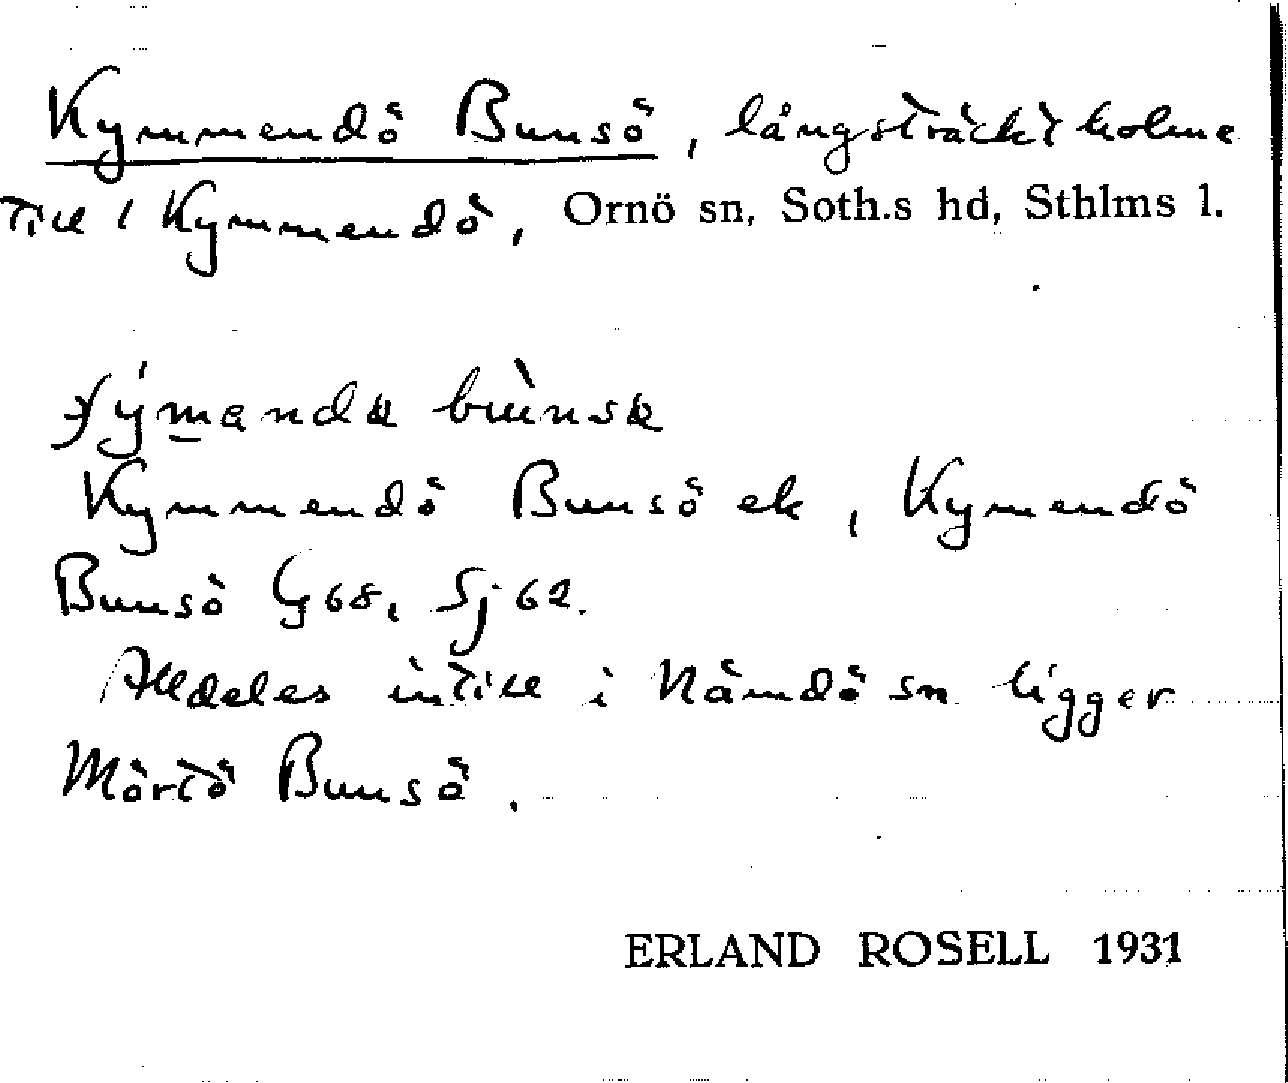 Kymmendö Bunsö, långsträckt holme
till / Kymmendö, Ornö sn, Soth.s hd, Sthlms l.
Kymmendö Bunsö ek, Kymendö
Bunsö G68, Sj 62.
Alldeles intill i Nämdö sn ligger
Mörtö Bunsö.
ERLAND ROSELL 1931